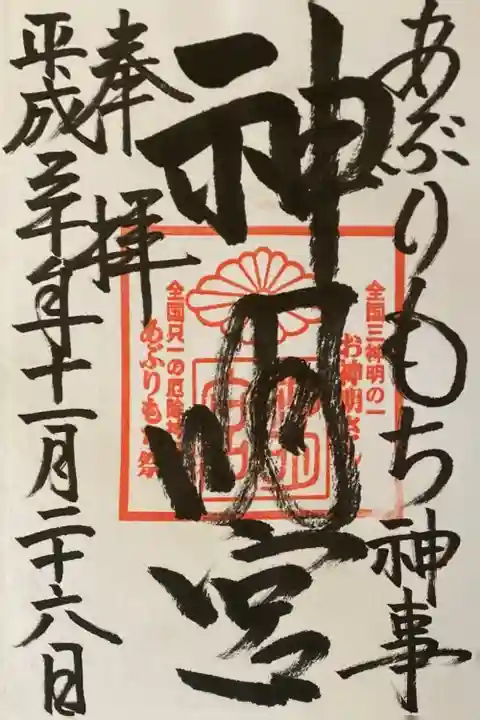 あぶりもち神事
神明宮
奉拝
平成三十年十一月二十六日
全国三神明の一
お神明さん
全国只一の厄除
あぶりもち祭